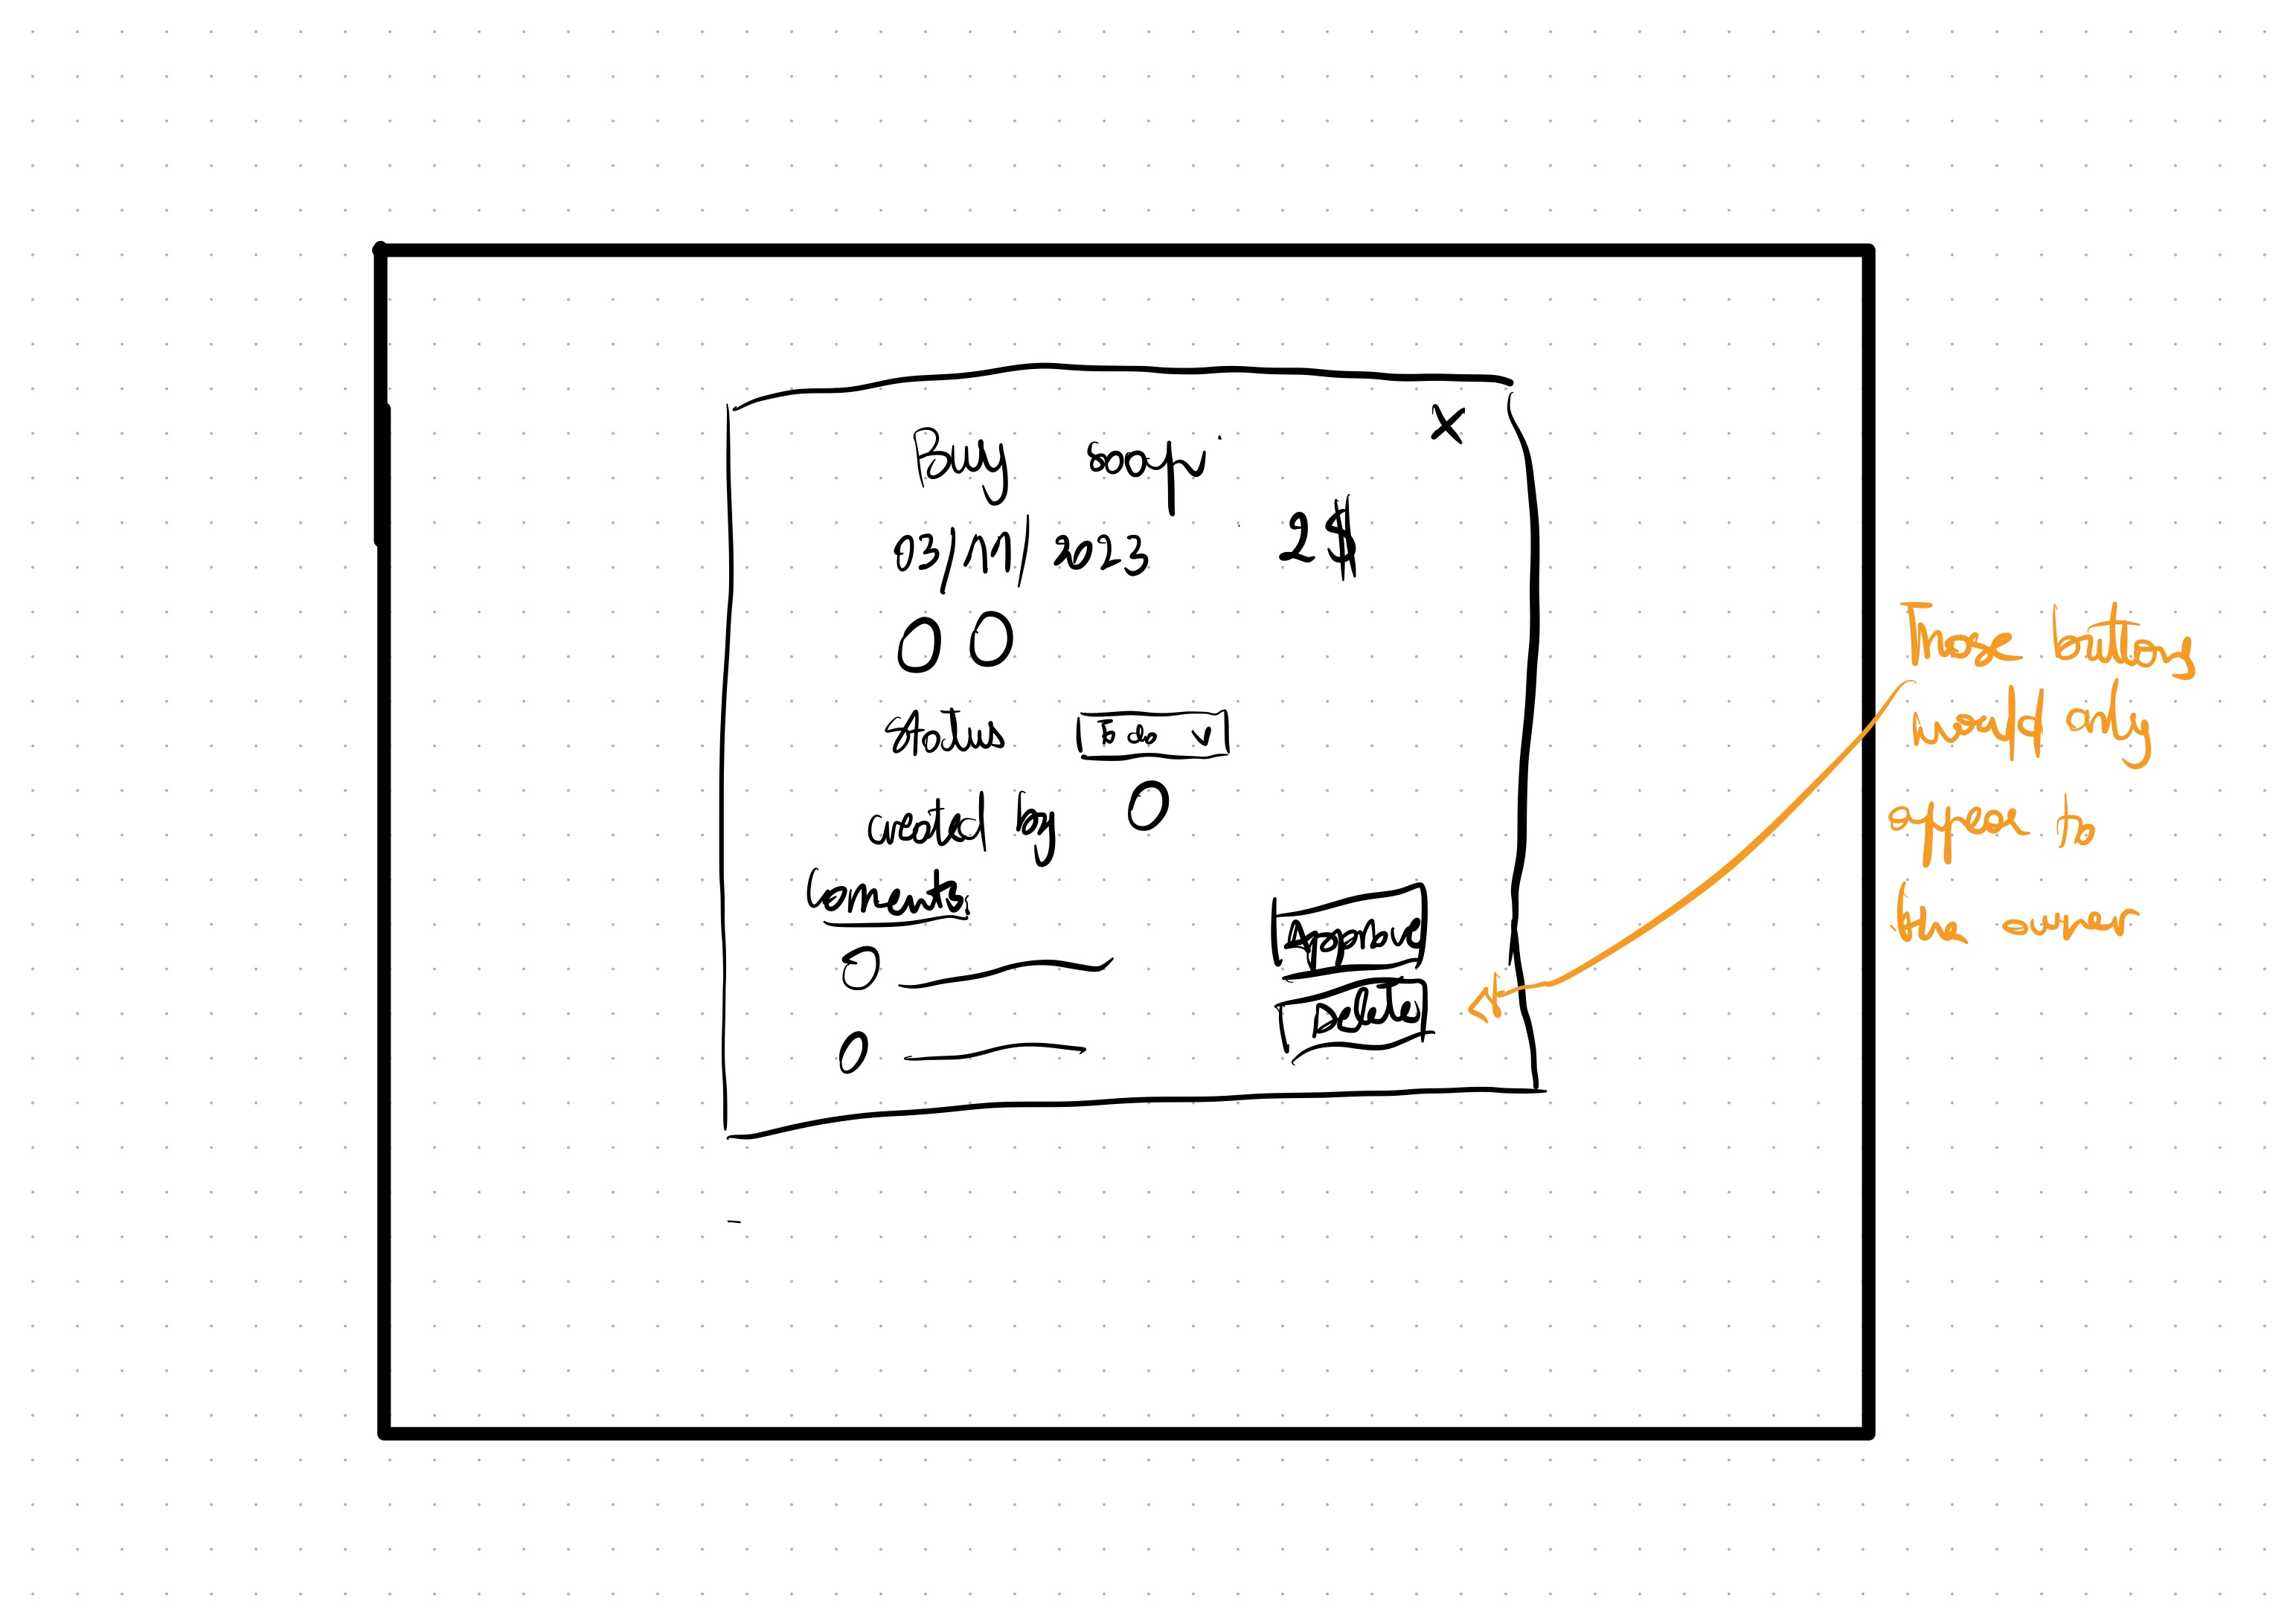 Buy soap
X
03/11/2023 2$
status To do
created by
Comments:
Approve
Delete
These buttons
would only
appear to
the owner